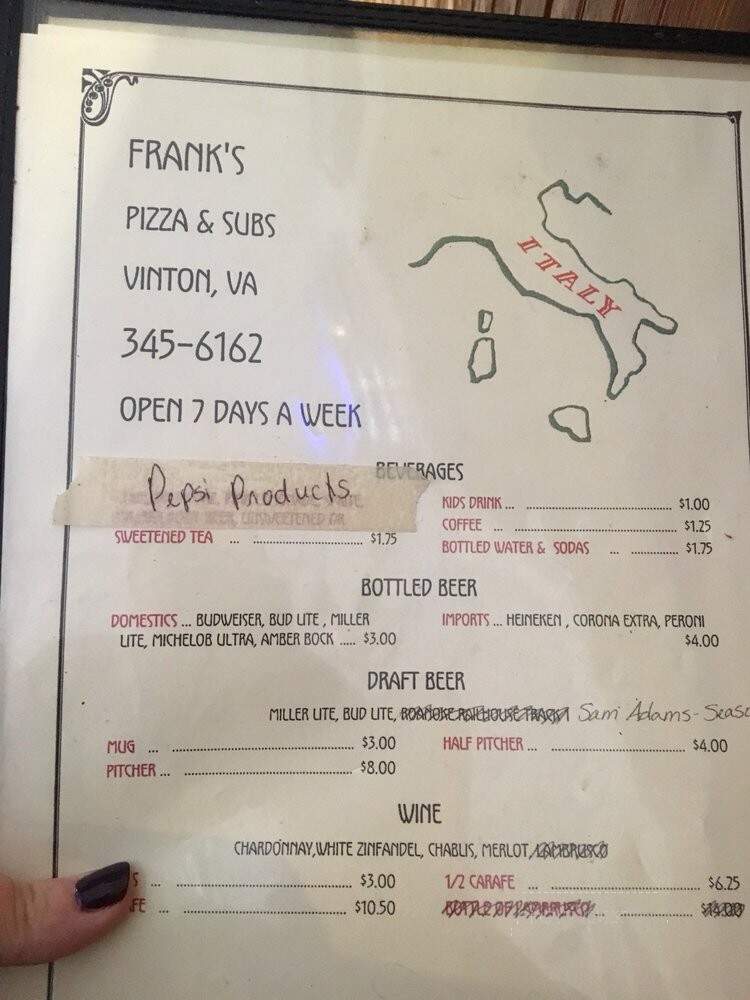 FRANK'S
PIZZA & SUBS
VINTON, VA
345-6162
OPEN 7 DAYS A WEEK
ITALY
BEVERAGES
Pepsi Products
UNSWEETENED OR
SWEETENED TEA ... $1.75
KIDS DRINK ... $1.00
COFFEE ... $1.25
BOTTLED WATER & SODAS ... $1.75
BOTTLED BEER
DOMESTICS ... BUDWEISER, BUD LITE , MILLER
LITE, MICHELOB ULTRA, AMBER BOCK ..... $3.00
IMPORTS ... HEINEKEN , CORONA EXTRA, PERONI
$4.00
DRAFT BEER
MILLER LITE, BUD LITE, Sam Adams - Seaso
MUG ... $3.00
PITCHER ... $8.00
HALF PITCHER ... $4.00
WINE
CHARDONNAY,WHITE ZINFANDEL, CHABLIS, MERLOT, LAMBRUSCO
S ... $3.00
FE ... $10.50
1/2 CARAFE ... $6.25
BOTTLE OF LAMBRUSCO ... $14.00